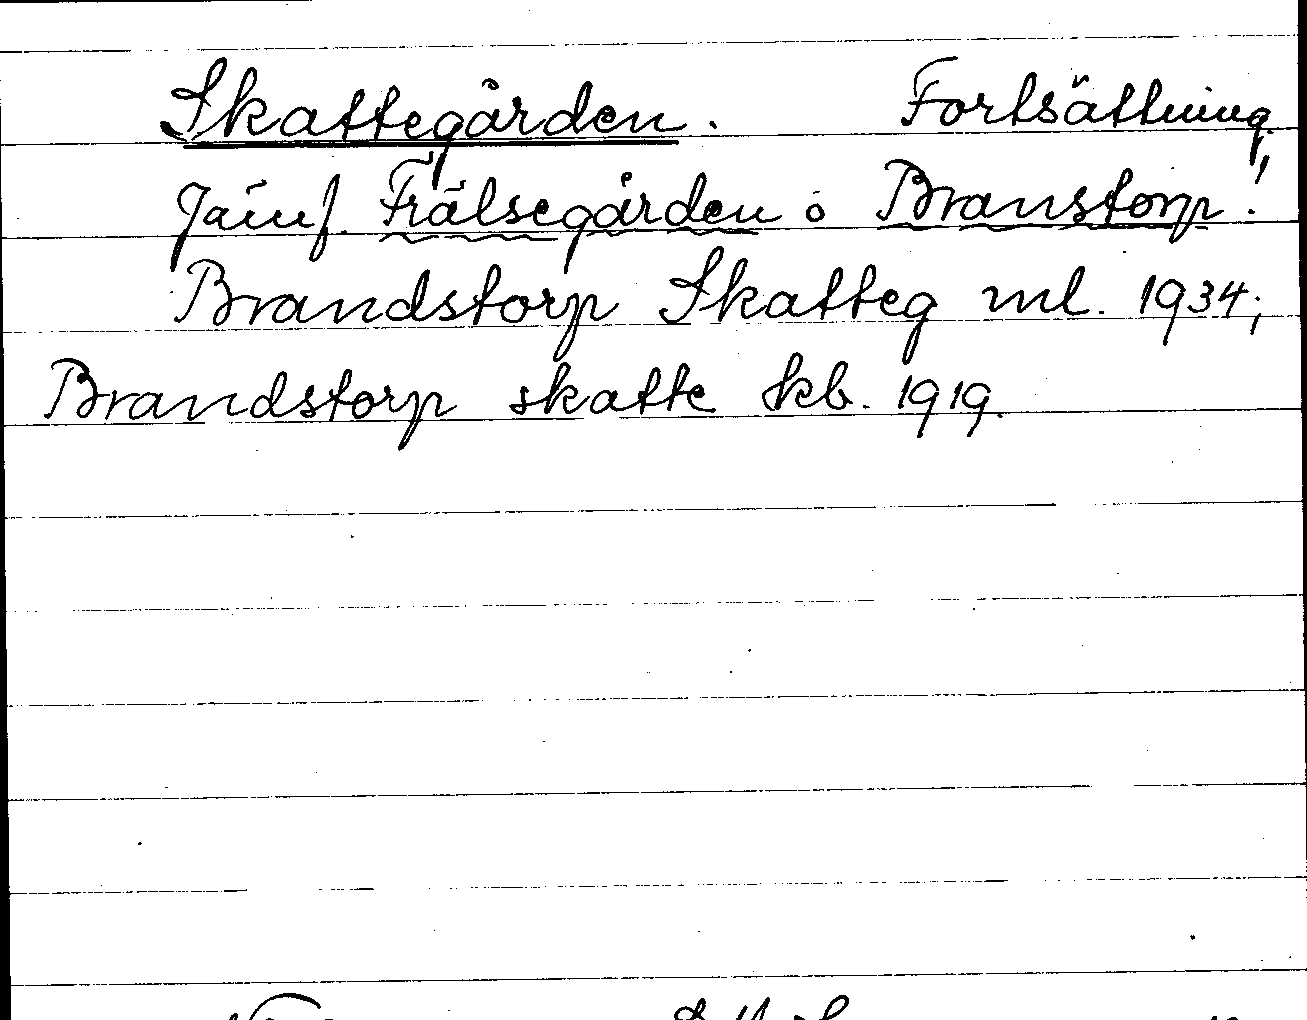 Skattegården. Fortsättning.
Jämf. Frälsegården o Branstorp!
Brandstorp Skatteg ml. 1934;
Brandstorp skatte kb. 1919.